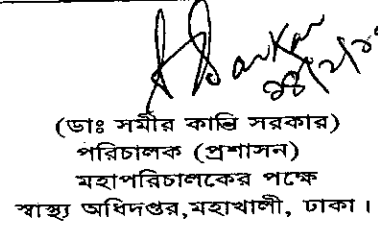 (ডাঃ সমীর কান্তি সরকার)
পরিচালক (প্রশাসন)
মহাপরিচালকের পক্ষে
স্বাস্থ্য অধিদপ্তর,মহাখালী, ঢাকা।